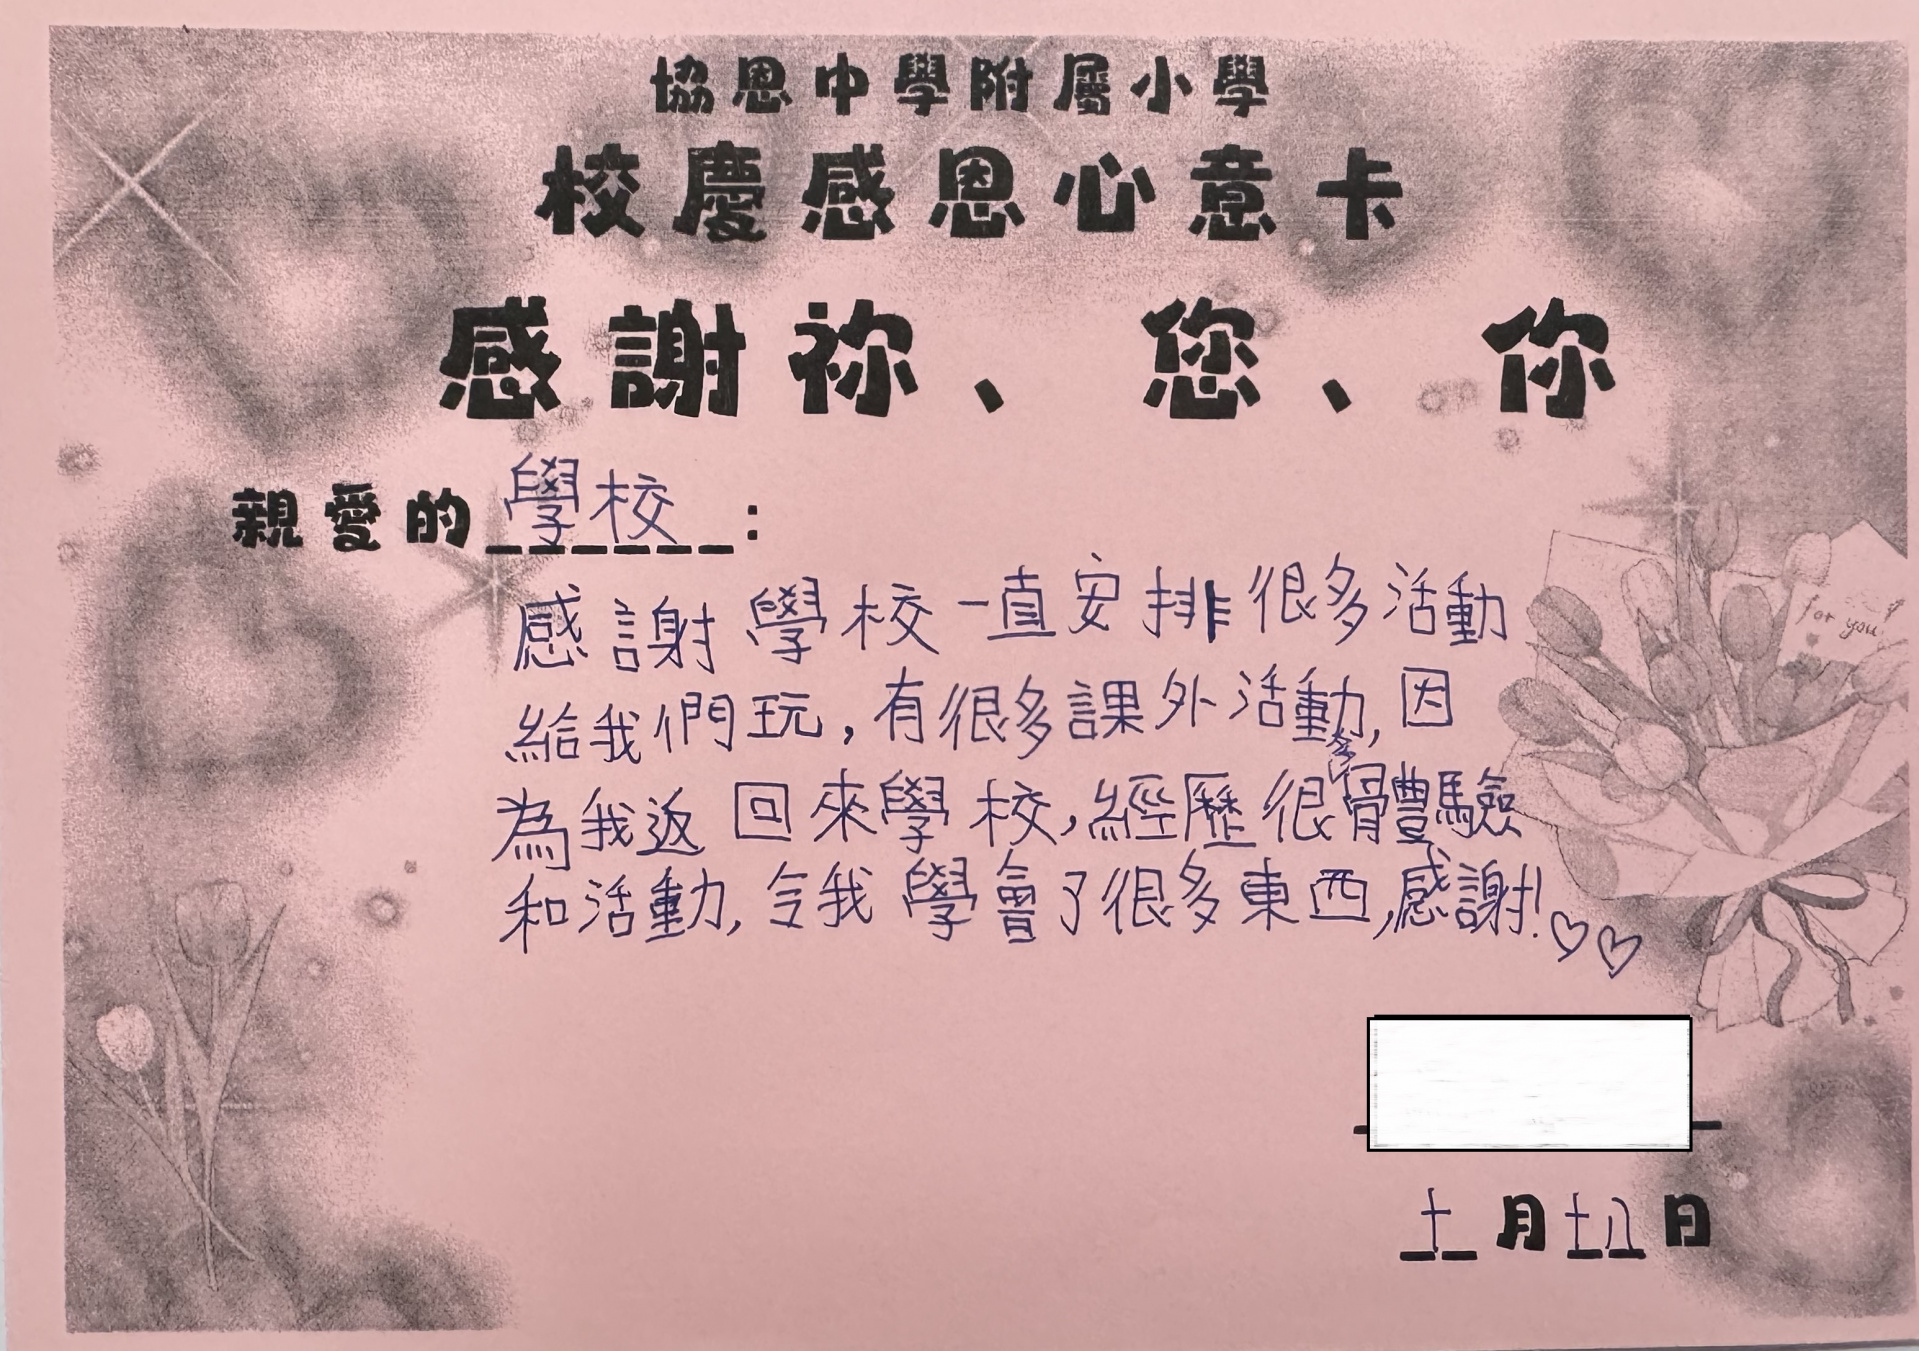 協恩中學附屬小學
校慶感恩心意卡
感謝祢、您、你
親愛的學校：
感謝學校一直安排很多活動
給我們玩，有很多課外活動，因
為我返回來學校，經歷很多體驗
和活動，令我學會了很多東西，感謝！♡♡
for you
十一月十八日